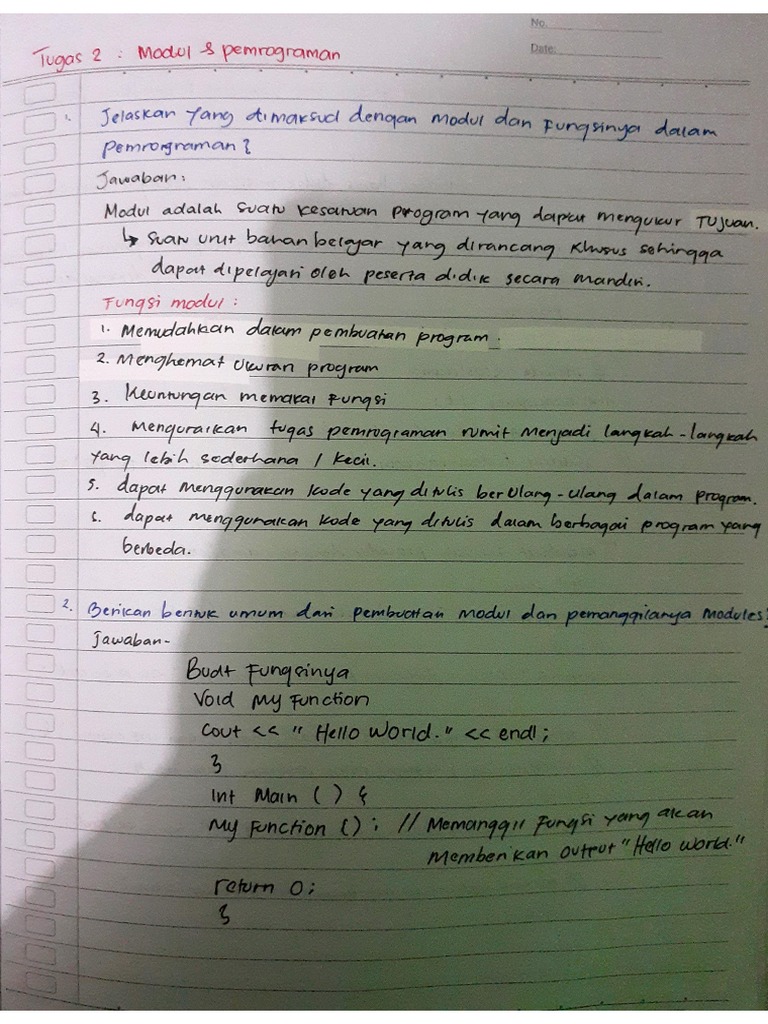 No.
Date:
Tugas 2 : Modul & pemrograman
1. Jelaskan yang dimaksud dengan modul dan Fungsinya dalam
Pemrorgraman?
Jawaban:
Modul adalah suatu kesatuan program yang dapat mengukur Tujuan.
↳ suatu unit bahan belajar yang dirancang khusus sehingga
dapat dipelajari oleh peserta didik secara mandiri.
Fungsi modul :
1. Memudahkan dalam pembuatan program.
2. Menghemat ukuran program
3. Keuntungan memakai Fungsi
4. Menguraikan tugas pemrograman rumit menjadi langkah-langkah
yang lebih sederhana / kecil.
5. dapat menggunakan kode yang ditulis berulang-ulang dalam program.
6. dapat menggunakan kode yang ditulis dalam berbagai program yang
berbeda.
2. Berikan bentuk umum dari pembuatan modul dan pemanggilanya modules?
Jawaban-
Buat Fungsinya
Void My Function
Cout << " Hello World." << endl;
}
Int Main () {
My Function () ; // Memanggil Fungsi yang akan
Memberikan output "Hello world."
return 0;
}